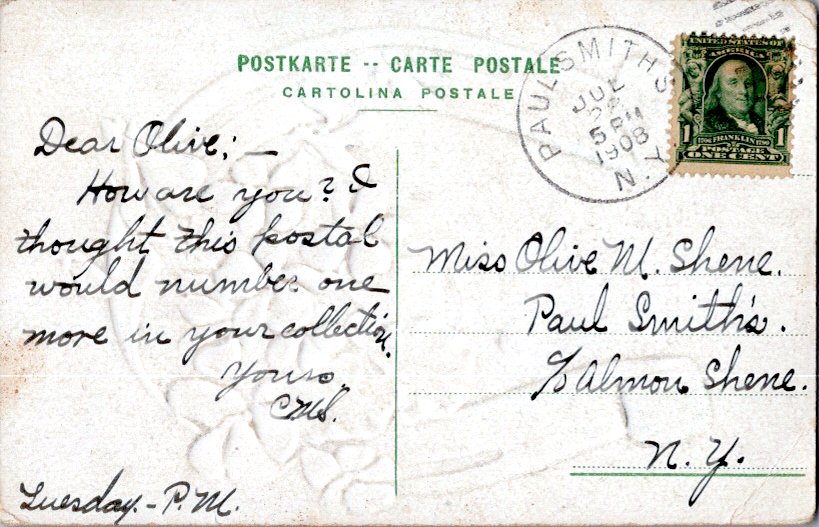 POSTKARTE -- CARTE POSTALE
CARTOLINA POSTALE
PAUL SMITHS
JUL
5 PM
1908
N.Y.
UNITED STATES OF
AMERICA
1 1
1706 FRANKLIN 1790
POSTAGE
ONE CENT
Dear Olive; —
How are you? I
thought this postal
would number one
more in your collection.
Yours,
C.M.S.
Tuesday - P.M.
Miss Olive M. Shene.
Paul Smith's.
℅ Almon Shene.
N.Y.